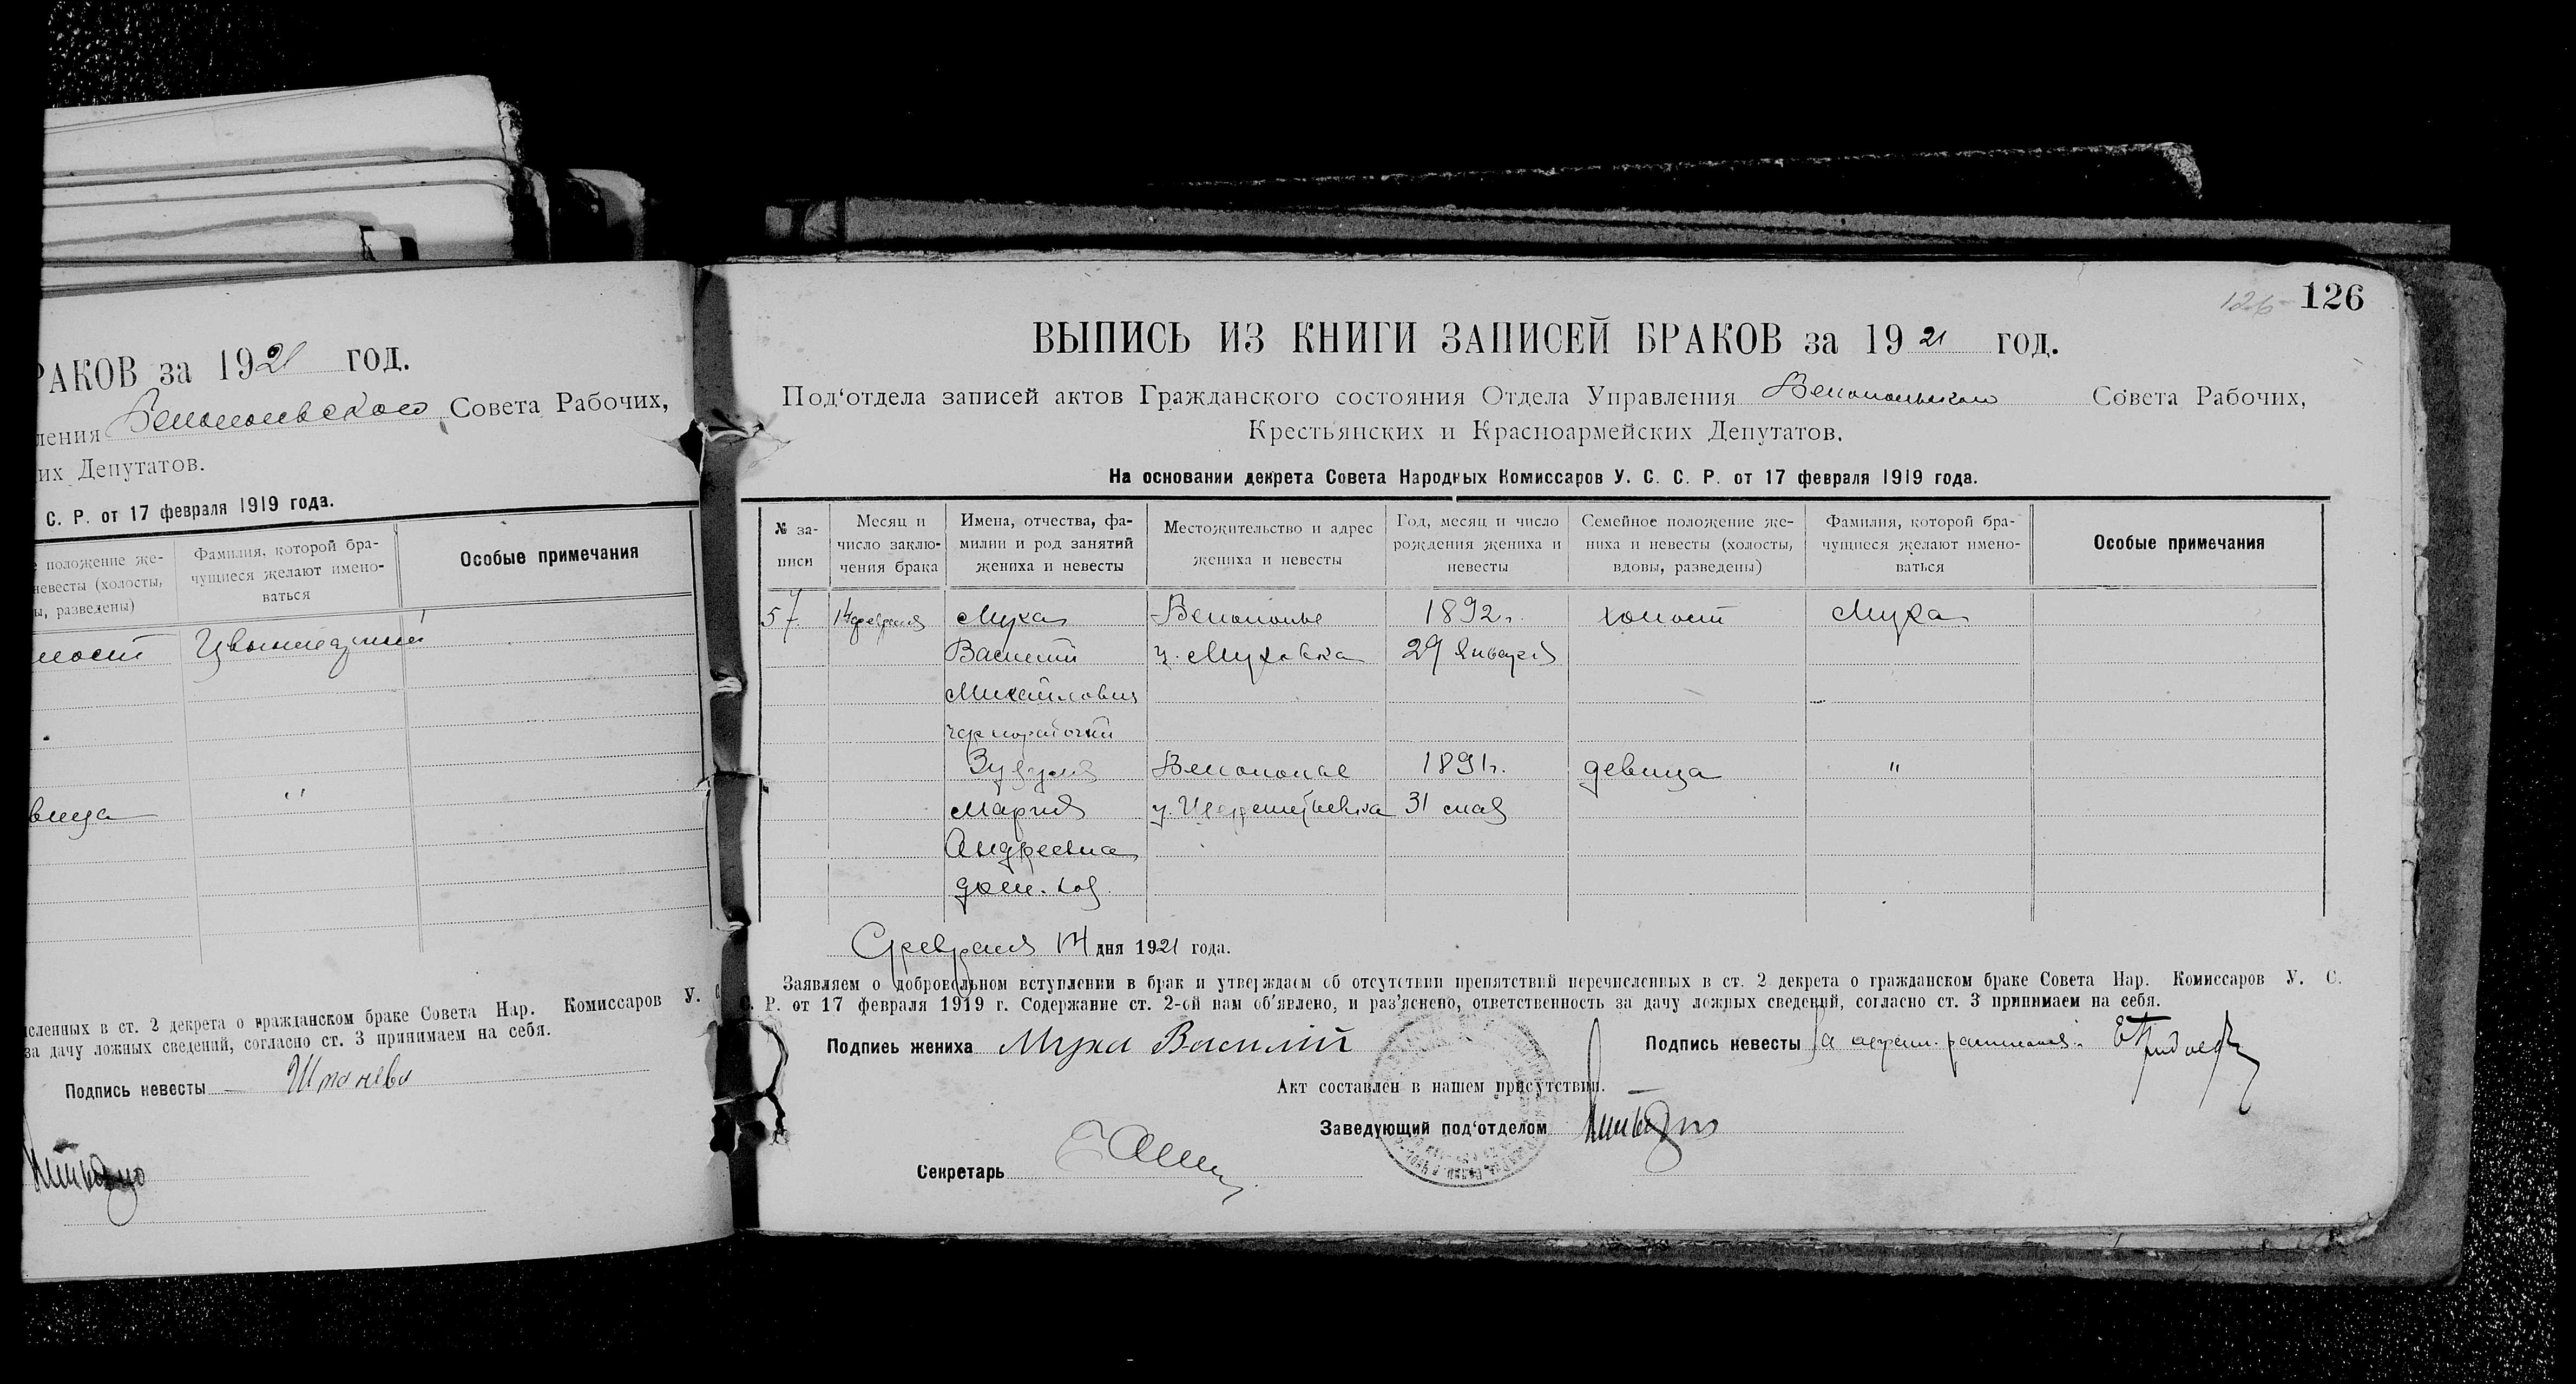 РАКОВ за 1921 год.
ления Белопольского Совета Рабочих,
их Депутатов.
С. Р. от 17 февраля 1919 года.
положение же-
невесты (холосты,
ы, разведены)
Фамилия, которой бра-
чущиеся желают имено-
ваться
Особые примечания
лост
"
вица
исленных в ст. 2 декрета о гражданском браке Совета Нар. Комиссаров У. С
за дачу ложных сведений, согласно ст. 3 принимаем на себя.
Подпись невесты
126 126
ВЫПИСЬ ИЗ КНИГИ ЗАПИСЕЙ БРАКОВ за 1921 год.
Под‘отдела записей актов Гражданского состояния Отдела Управления Белопольского Совета Рабочих,
Крестьянских и Красноармейских Депутатов.
На основании декрета Совета Народных Комиссаров У. С. С. Р. от 17 февраля 1919 года.
№ за-
писи
Месяц и
число заклю-
чения брака
Имена, отчества, фа-
милии и род занятий
жениха и невесты
Местожительство и адрес
жениха и невесты
Год, месяц и число
рождения жениха и
невесты
Семейное положение же-
ниха и невесты (холосты,
вдовы, разведены)
Фамилия, которой бра-
чущиеся желают имено-
ваться
Особые примечания
57 14 февраля Муха Белополье 1892 г. холост Муха
Василий у. Муховка 29 Января
Михайлович
чернорабочий
Белополье 1891 г. девица "
Мария 31 мая
Андреевна
дом. хоз.
Февраля 14 дня 1921 года.
Заявляем о добровольном вступлении в брак и утверждаем об отсутствии препятствий перечисленных в ст. 2 декрета о гражданском браке Совета Нар. Комиссаров У. С.
С. Р. от 17 февраля 1919 г. Содержание ст. 2-ой нам об‘явлено, и раз‘яснено, ответственность за дачу ложных сведений, согласно ст. 3 принимаем на себя.
Подпись жениха Муха Василій Подпись невесты За
Акт составлен в нашем присутствии.
Заведующий под‘отделом
Секретарь